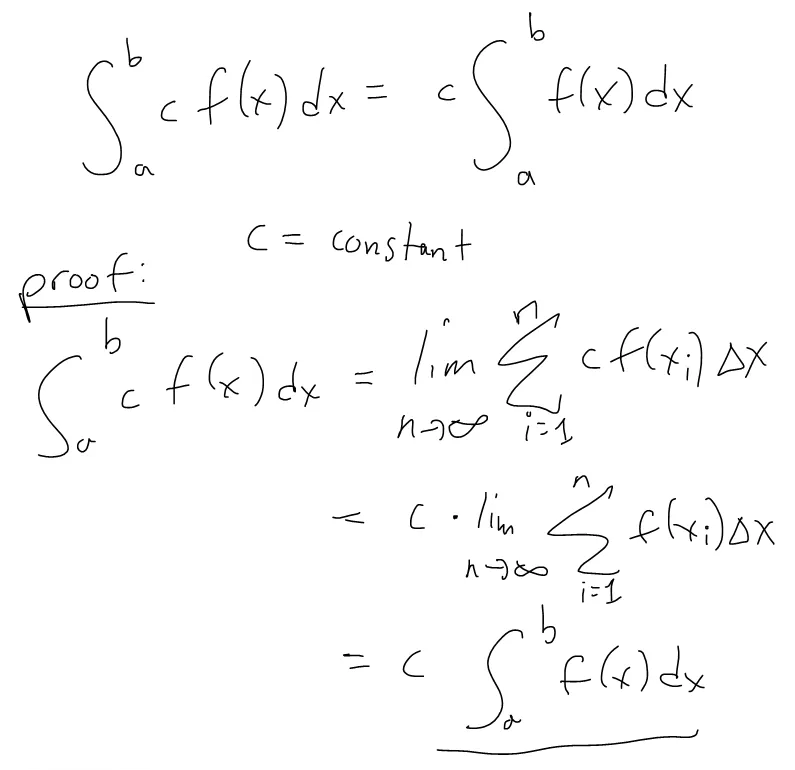 ∫_a^b c f(x) dx = c ∫_a^b f(x) dx
c = constant
proof:
∫_a^b c f(x) dx = lim_{n→∞} ∑_{i=1}^n c f(x_i) Δx
= c · lim_{n→∞} ∑_{i=1}^n f(x_i) Δx
= c ∫_a^b f(x) dx